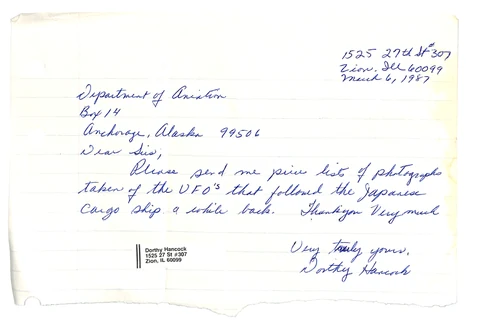 1525 27th St #307
Zion, Ill 60099
March 6, 1987
Department of Aviation
Box 14
Anchorage, Alaska 99506
Dear Sirs,
Please send me price lists of photographs
taken of the UFO's that followed the Japanese
cargo ship a while back. Thank you Very Much
Very truly yours,
Dorthy Hancock
Dorthy Hancock
1525 27 St #307
Zion, IL 60099